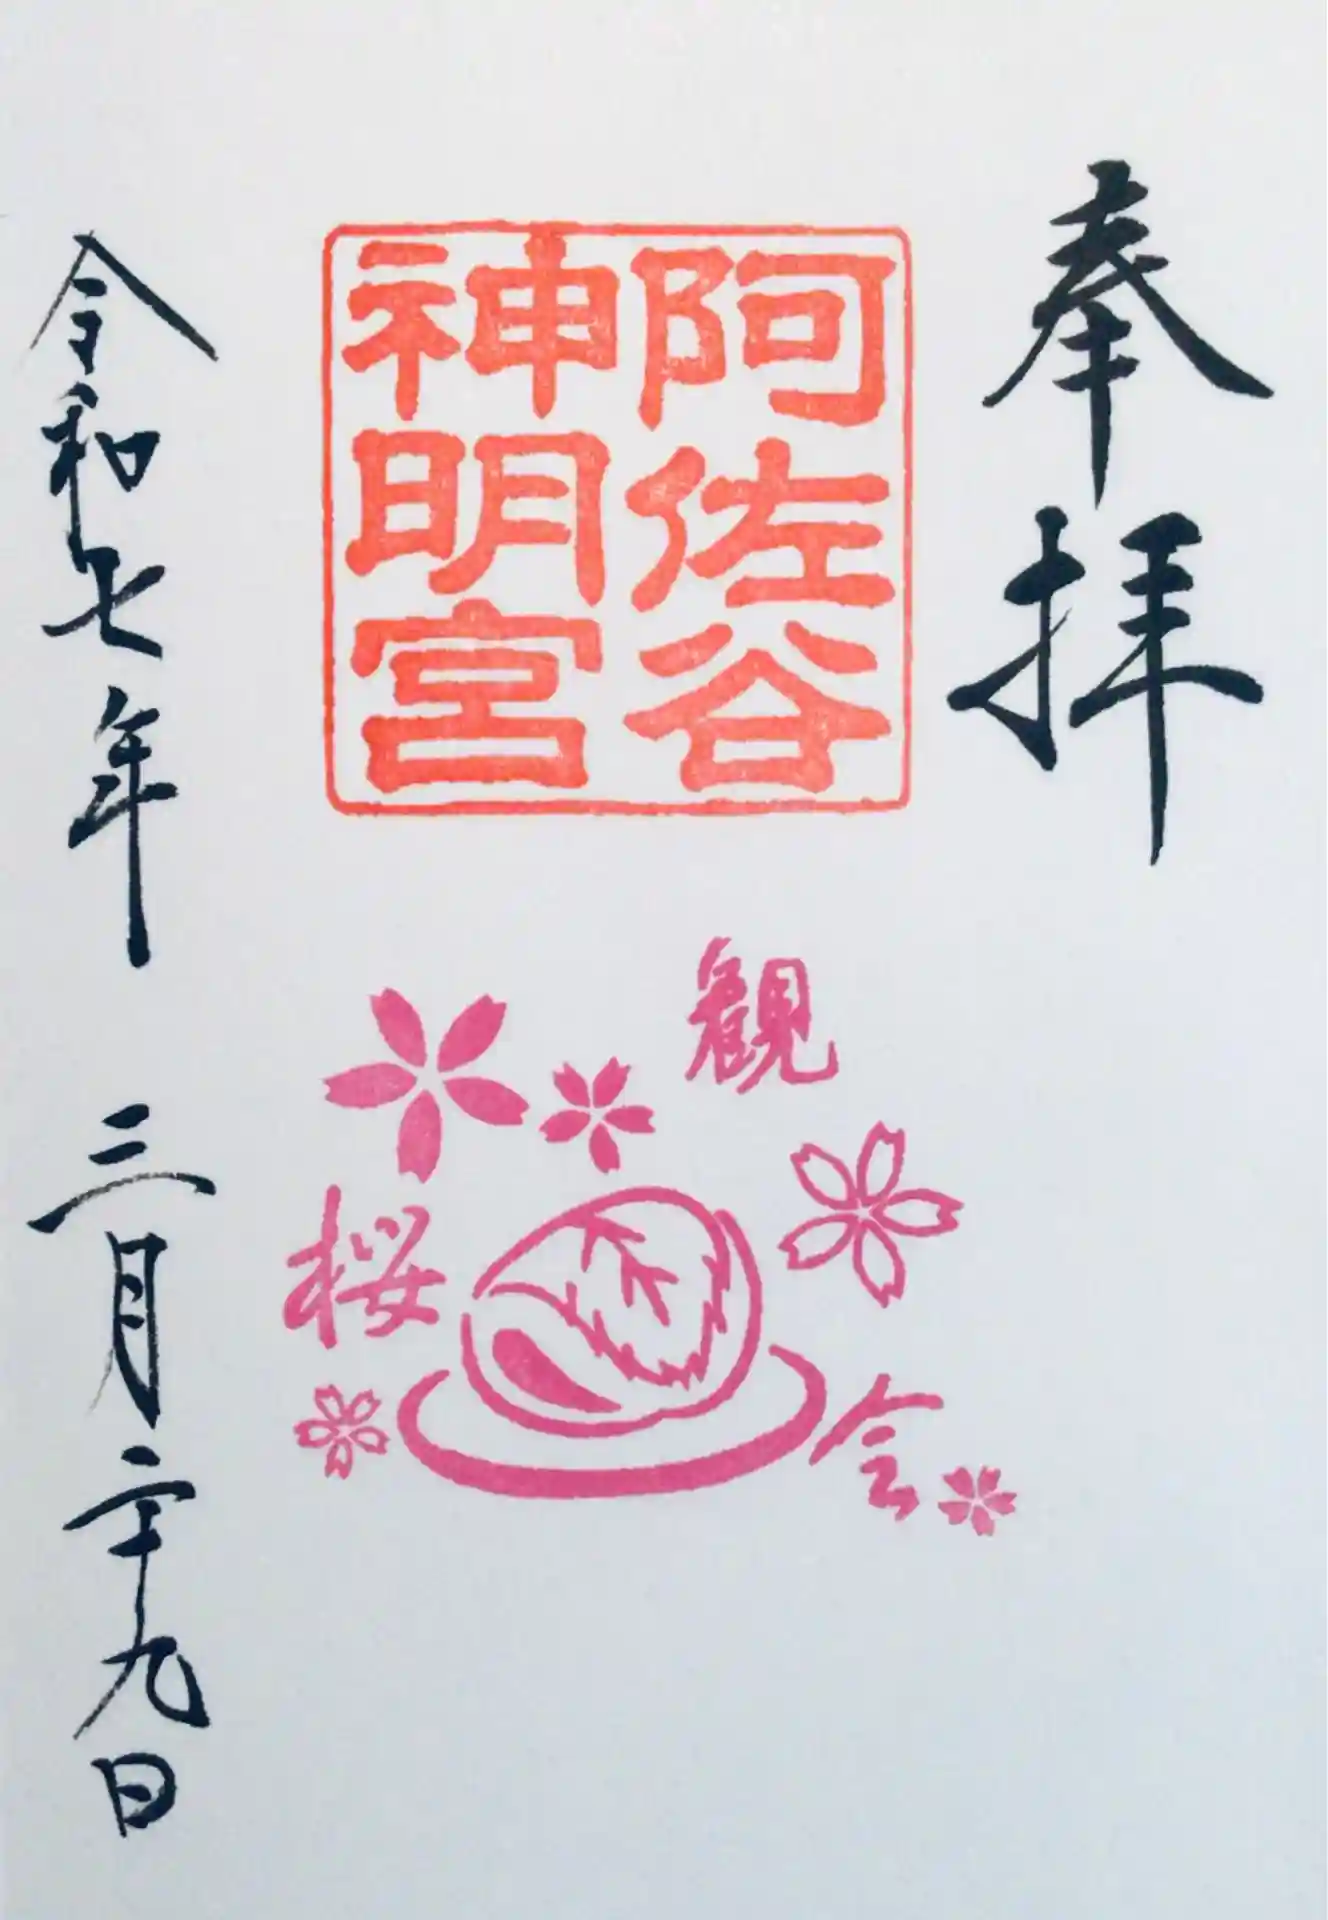 奉拝
阿佐谷
神明宮
観
桜
会
令和七年 三月二十九日